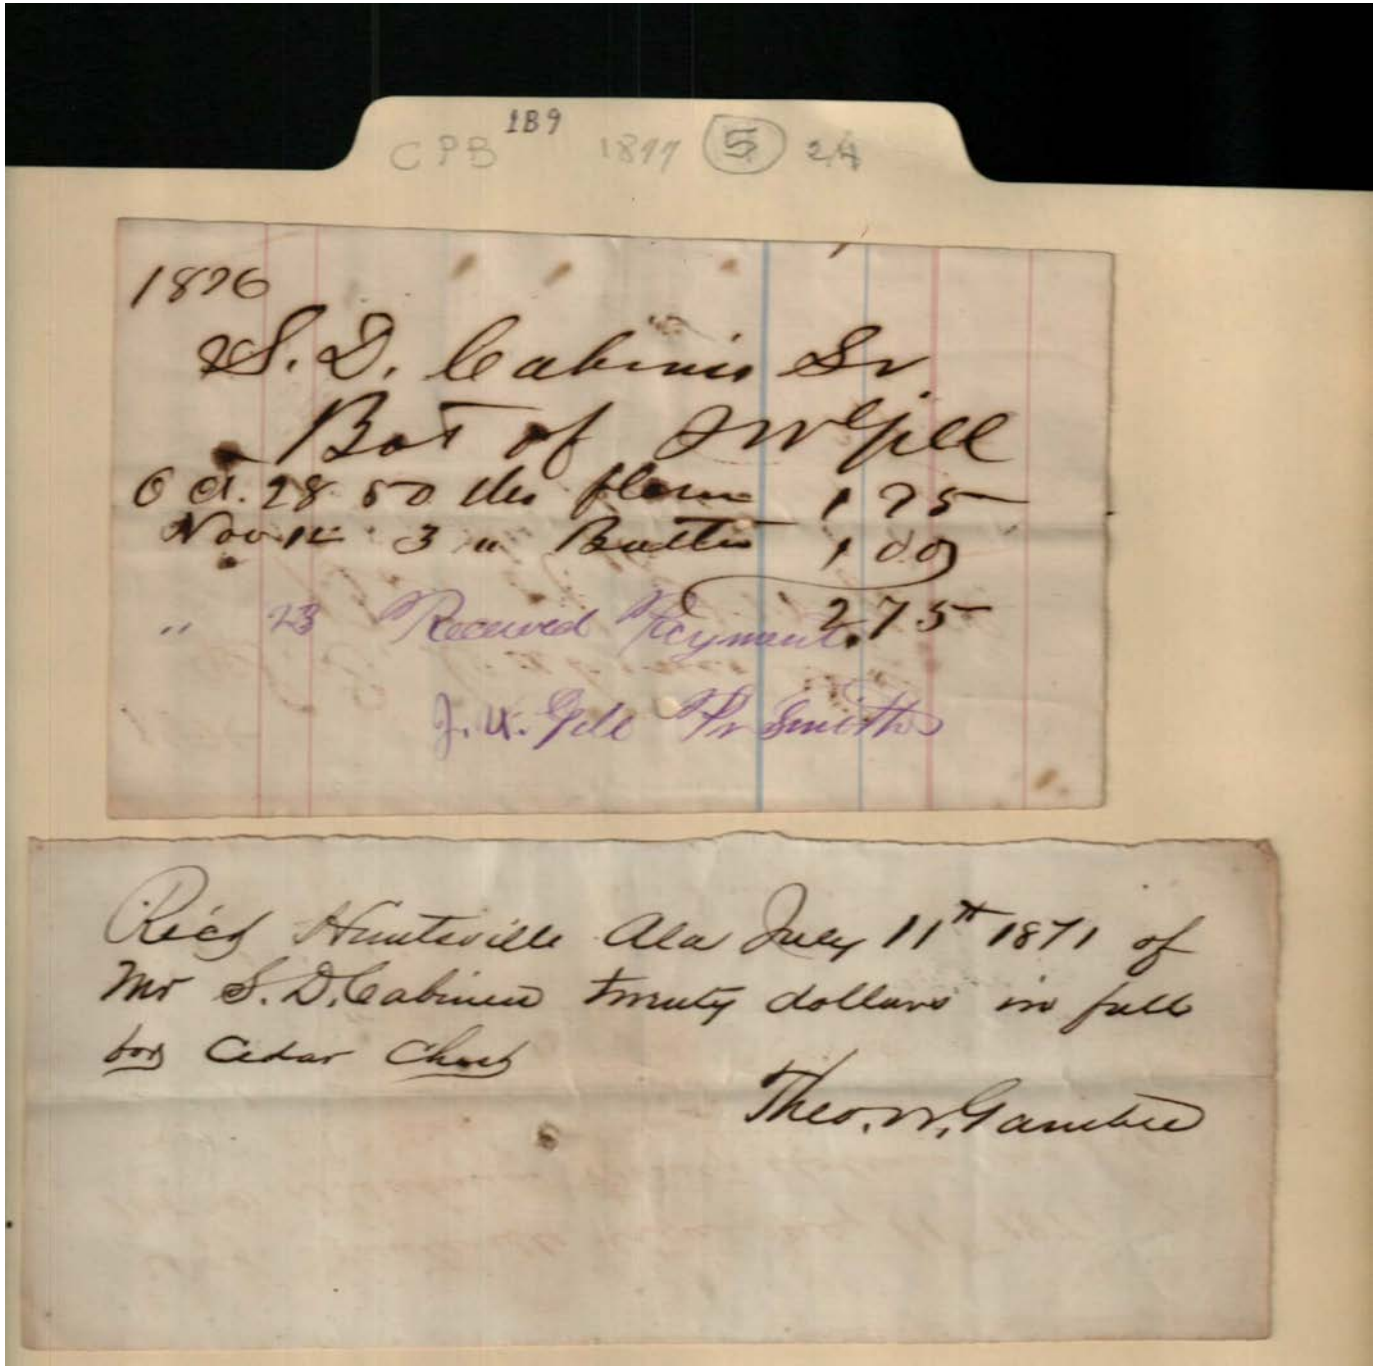 CPB 1B9 1877 5 2A
1876
S. D. Cabiniss Sr.
Bot of J W Gill
Oct. 28 50 lbs flour 1 75
Nov 12 3 " Butter 1 00
2 75
" 23 Received Payment
J. W. Gill Pr Smith
Rec'd Huntsville Ala July 11th 1871 of
Mr S. D. Cabiness twenty dollars in full
for Cedar Chest
Theo. W. Gamble